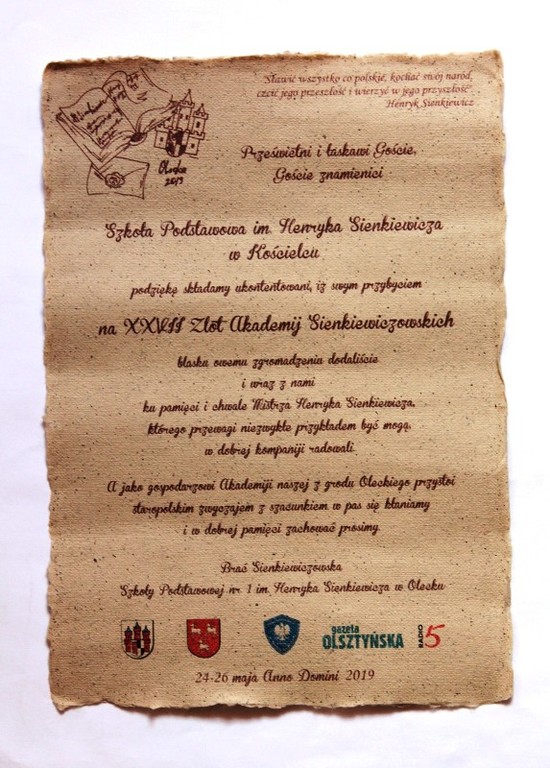 "Sławić wszystko co polskie, kochać swój naród,
czcić jego przeszłość i wierzyć w jego przyszłość".
Henryk Sienkiewicz
Olecko
2019
Prześwietni i łaskawi Goście,
Goście znamienici
Szkoła Podstawowa im. Henryka Sienkiewicza
w Kościelcu
podziękę składamy ukontentowani, iż swym przybyciem
na XXVII Zlot Akademij Sienkiewiczowskich
blasku owemu zgromadzenia dodaliście
i wraz z nami
ku pamięci i chwale Mistrza Henryka Sienkiewicza,
którego przewagi niezwykłe przykładem być mogą,
w dobrej kompaniji radowali.
A jako gospodarzowi Akademiji naszej z grodu Oleckiego przystoi
staropolskim zwyczajem z szacunkiem w pas się kłaniamy
i w dobrej pamięci zachować prosimy.
Brać Sienkiewiczowska
Szkoły Podstawowej nr 1 im. Henryka Sienkiewicza w Olecku
gazeta
OLSZTYŃSKA
RADIO 5
24-26 maja Anno Domini 2019